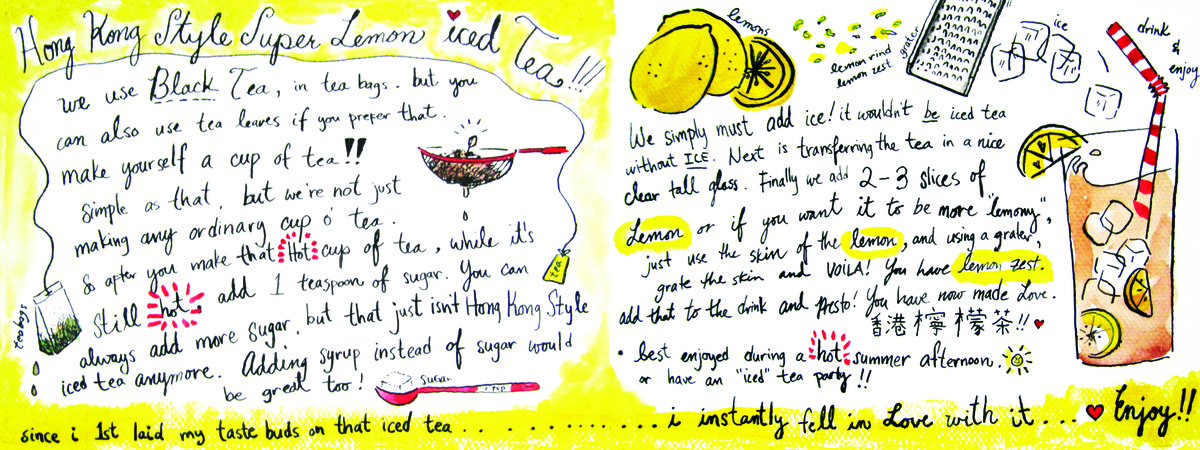 Hong Kong Style Super Lemon iced Tea!!!
we use Black Tea, in tea bags. but you
can also use tea leaves if you prefer that.
make yourself a cup of tea!!
simple as that, but we're not just
making any ordinary cup o' tea.
& after you make that hot cup of tea, while it's
still hot, add 1 teaspoon of sugar. You can
always add more sugar, but that just isn't Hong Kong Style
iced tea anymore. Adding syrup instead of sugar would
be great too!
teabags
tea
sugar
1 tsp
since i 1st laid my taste buds on that iced tea . . . . . . . . . . . . . . . i instantly fell in Love with it . . . . Enjoy!!
lemons
lemon rind
lemon zest
grater
ice
drink
&
enjoy
We simply must add ice! it wouldn't be iced tea
without ICE. Next is transferring the tea in a nice
clear tall glass. Finally we add 2-3 slices of
Lemon or if you want it to be more "lemony",
just use the skin of the lemon, and using a grater,
grate the skin and VOILA! You have lemon zest.
add that to the drink and presto! You have now made Love.
香港檸檬茶!!
• Best enjoyed during a hot summer afternoon.
or have an "iced" tea party!!